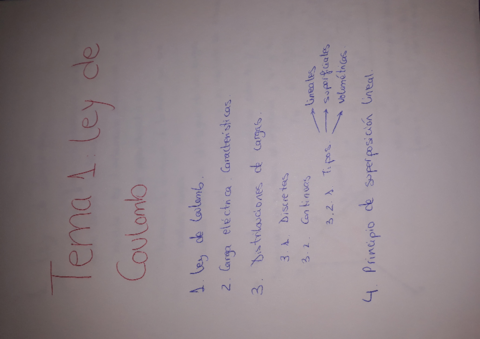 Tema 1: Ley de
Coulomb
1 Ley de Coulomb.
2. Carga eléctrica: Características
3. Distribuciones de cargas.
3.1 Discretas
3.2 Continuas
3.2.1 Tipos → lineales
→ superficiales
→ volumétricas
4 Principio de superposición lineal